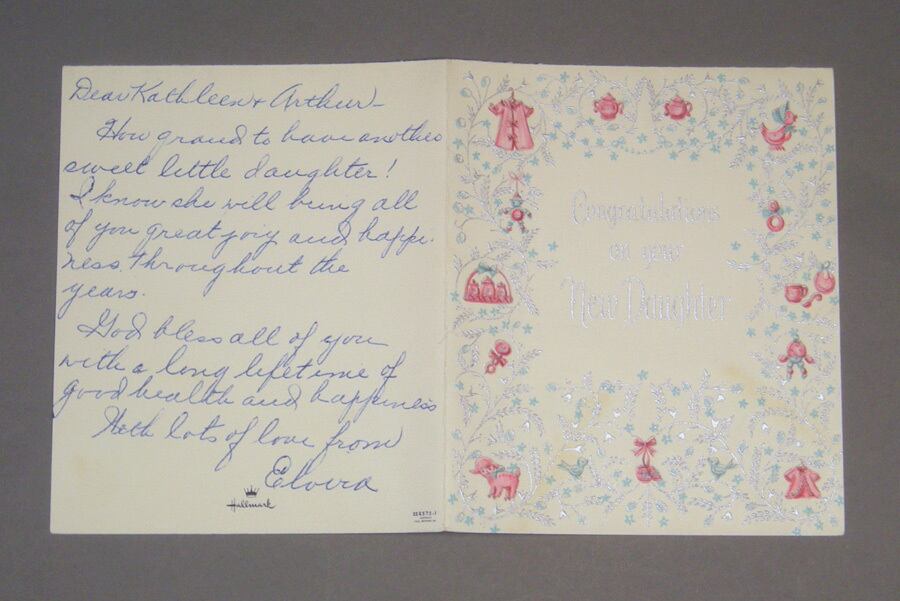 Dear Kathleen + Arthur—
How grand to have another
sweet little daughter!
I know she will bring all
of you great joiy and happi-
ness throughout the
years.
God bless all of you
with a long lifetime of
good health and happiness
With lots of love from
Elvira
Hallmark
Congratulations
on your
New Daughter